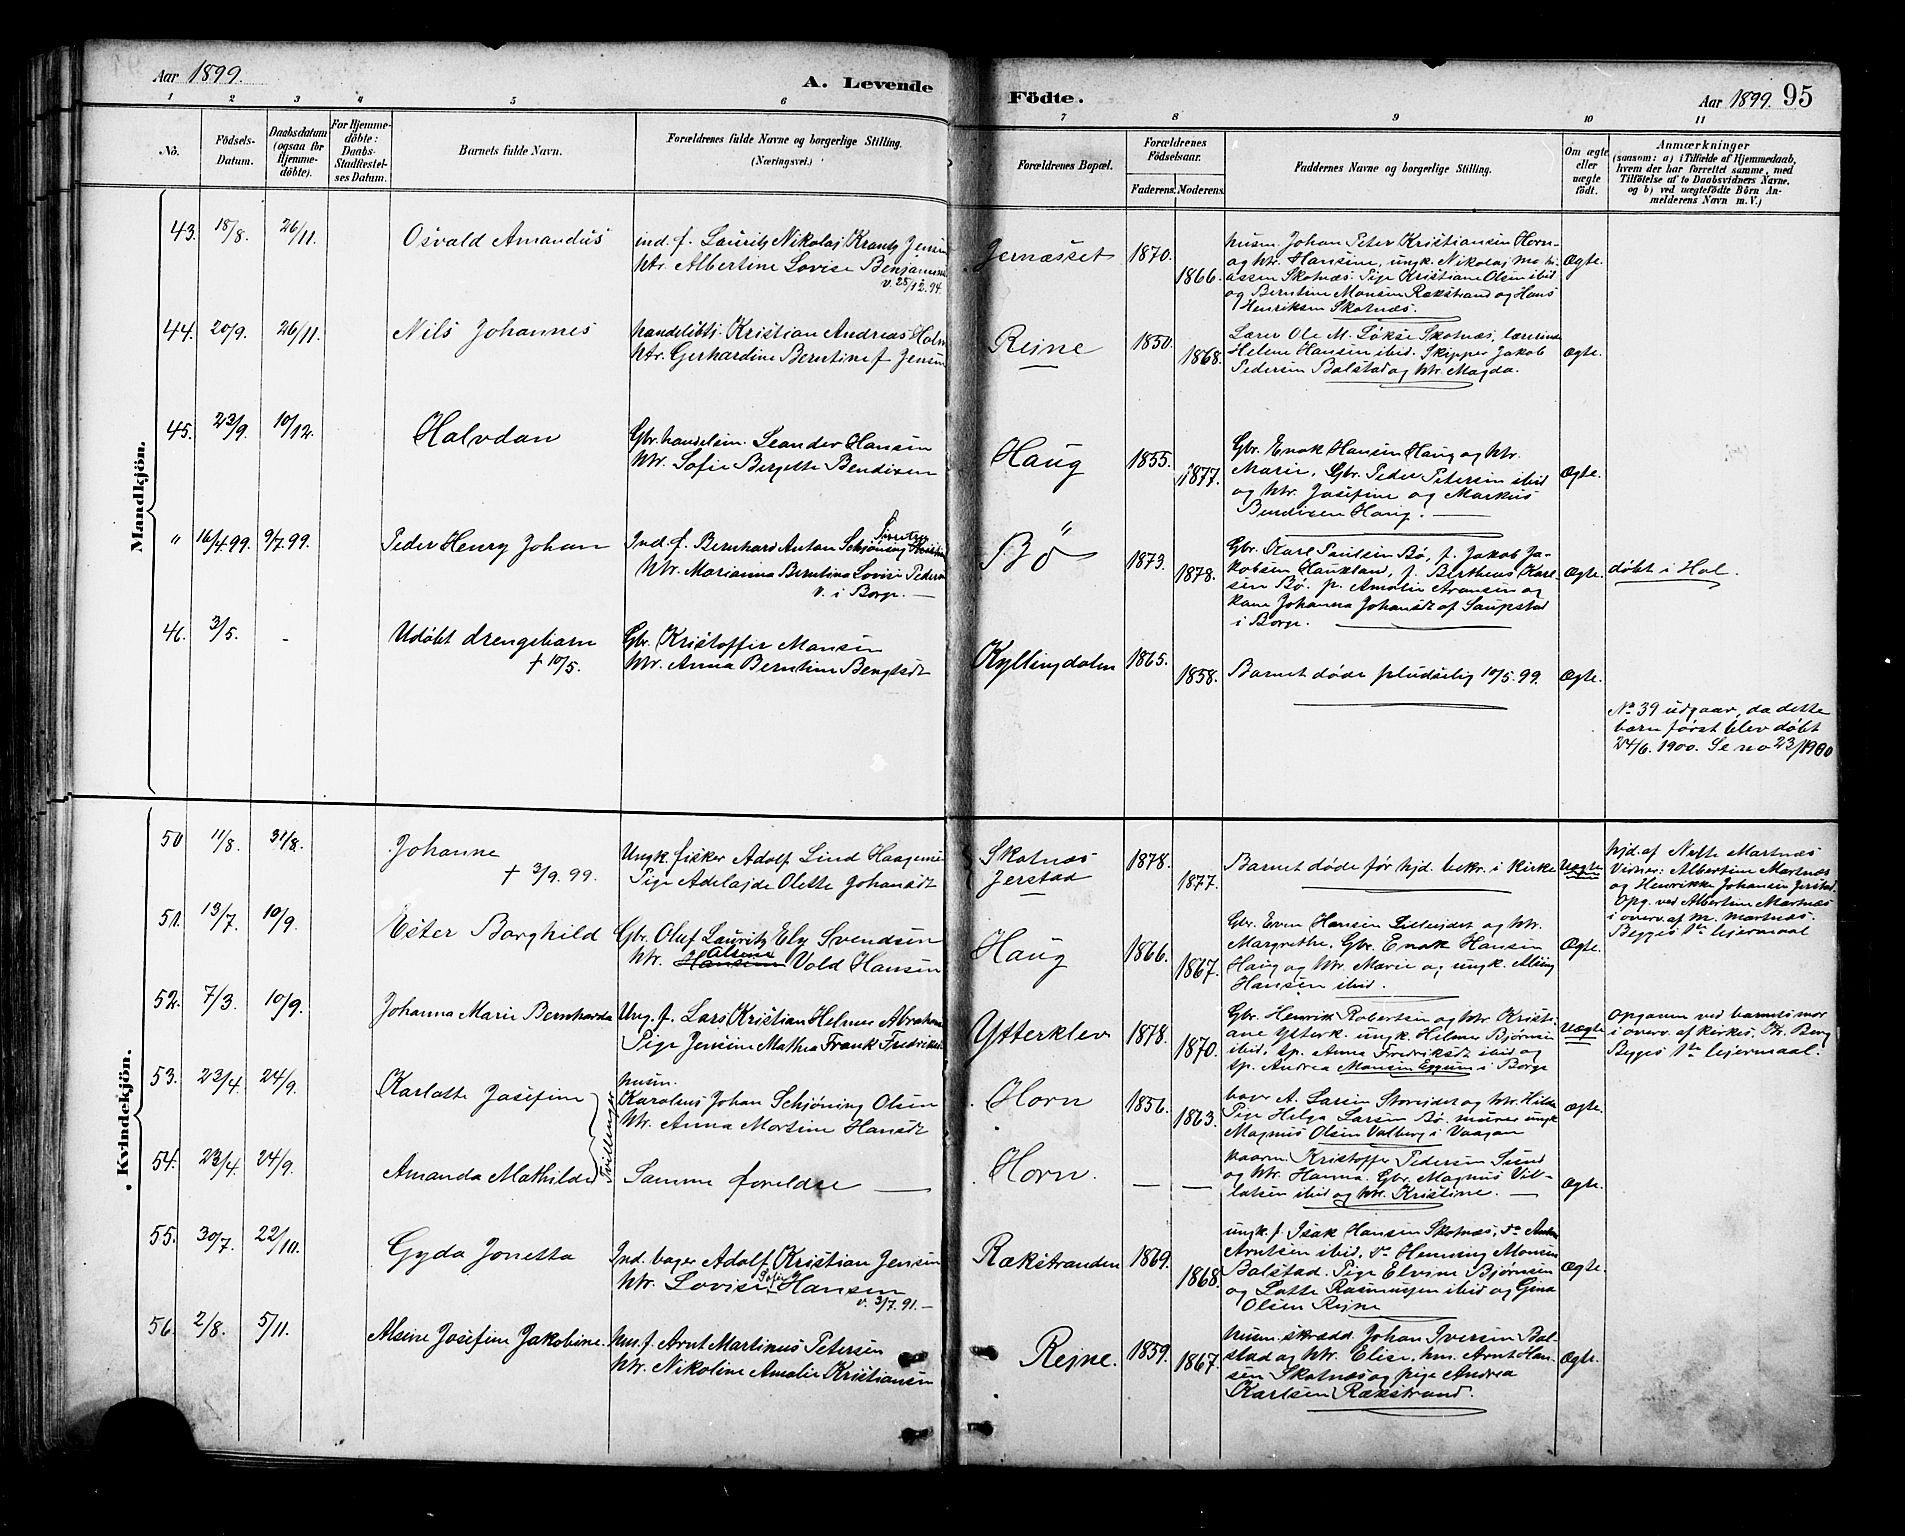 Aar 1899.
A. Levende
Födte.
Aar 1899. 95
1 2 3 4 5 6 7 8 9 10 11
No.
Födsels-
Datum.
Daabsdatum
(ogsaa for
Hjemme-
döbte).
For Hjemme-
döbte:
Daabs-
Stadfæstel-
ses Datum.
Barnets fulde Navn.
Forældrenes fulde Navne og borgerlige Stilling.
(Næringsvei.)
Forældrenes Bopæl.
Forældrenes
Födselsaar.
Faderens. Moderens.
Faddernes Navne og borgerlige Stilling.
Om ægte
eller
uægte
født.
Anmærkninger
(saasom: a) i Tilfælde af Hjemmedaab,
hvem der har forrettet samme, med
Tilføielse af to Daabsvidners Navne,
og b) ved uægtefødte Børn An-
melderens Navn m. V.)
Mandkjön.
43. 18/8. 26/11. Osvald Amandus
ind. f. Lauritz Nikolaj Krantz Jensen
htr. Albertine Lovise Benjaminsen
v. 25/12. 94.
Jernæsset 1870. 1866.
husm. Johan Peter Kristiansen Horn
og htr. Hansine, ungk. Nikolaj Mathi-
assen Skotnæs. Pige Kristiane Olsen ibid
og Berntine Monsen Rækstrand og Hans
Henriksen Skotnæs.
Ægte.
44. 20/9. 26/11. Nils Johannes
handelsbtj. Kristian Andreas Holm
htr. Gerhardine Berntine f. Jensen
Rejne 1850. 1868.
Lærer Ole M. Løkse Skotnæs, lærerinde
Helene Hansen ibid. Skipper Jakob
Pedersen Balstad og htr Magda.
Ægte.
45. 23/9. 10/12. Halvdan
Gbr. handelsm. Leander Hansen
htr. Sofie Bergitte Bendixen
Haug 1855. 1877.
Gbr. Enok Hansen Haug og htr.
Marie, Gbr. Peder Petersen ibid
og htr. Josefine og Markus
Bendixen Haug.
Ægte.
" 16/4 99. 9/7. 99. Peder Henry Johan
Ind. f. Bernhard Anton Schjøning
htr. Marianna Berntina Lovise Peders
v. i Borge.
Bø 1873. 1878.
Gbr. Karl Paulsen Bø, f. Jakob Ja-
kobsen Haukland, f. Bertheus Karl-
sen Bø. p. Amalie Aronsen og
kone Johanna Johansdt af Saupstad
i Borge.
Ægte. døbt i Hol.
46. 3/5. - Udøbt drengebarn
+ 10/5.
Gbr. Kristoffer Monsen
htr. Anna Berntine Bengtsdt
Kyllingdalen 1865. 1858.
Barnet døde pludselig 10/5. 99. Ægte.
No 39 udgaar, da dette
barn først blev døbt
24/6. 1900. Se no 23/1900
Kvindekjön.
50 11/8. 31/8. Johanne
+ 3/9. 99.
Ungk. fisker Adolf Lind Haagensen
Pige Adelajde Olette Johansdt
Skotnæs
Jerstad
1878. 1877.
Barnet døde før hjd. bekr. i kirke Uægte
hjd. af Nette Martnæs
Vidner: Albertine Martnæs
og Henrikke Johansen Jerstad.
Opg. ved Albertine Martnæs
i overv. af M. Martnæs.
Begges 1ste lejermaal
51. 13/7. 10/9. Ester Borghild
Gbr. Oluf Lauritz Ely Svendsen
htr. Hansine Alsine Vold Hansen
Haug 1866. 1867.
Gbr. Even Hansen Lilleeidet og htr.
Margrethe, Gbr. Enok Hansen
Haug og htr. Marie og ungk.
Hansen ibid.
Ægte.
52. 7/3. 10/9. Johanna Marie Bernharda
Ung. f. Lars Kristian Helmer Abraham
Pige Jensine Mathea Frank Fredriksen
Ytterklev 1878. 1870.
Gbr. Henrik Robertsen og htr Kristi-
ane Ytterk. ungk. Helmer Bjørnsen
ibid. tp. Anna Fredriksdt ibid og
tp. Andrea Monsen Eggum i Borge
Uægte.
Opgaven ved barnets mor
i overv. af kirkes. Th. Berg
Begges 1ste lejermaal.
53. 23/4. 24/9. Karlotte Josefine
Tvillinger
husm.
Karolus Johan Schjøning Olsen
htr. Anna Mortine Hansdt
Horn 1856. 1863.
bager A. Larsen Storeidet og htr. Hilda
Pige Helga Larsen Bø. murer ungk
Magnus Olsen Valberg i Vaagan
Ægte.
54. 23/4. 24/9. Amanda Mathilde
Samme foreldre
Horn. — —
Kristoffer Pedersen Sund
og htr. Hanna. Gbr. Magnus Vil-
latsen ibid og htr. Kristine.
Ægte.
55. 30/7. 22/10. Gyda Jonetta
Ind. bager Adolf Kristian Jensen
htr. Lovise Sofie Hansen
v. 3/7. 91.
Rækstranden 1869. 1868.
ungk. f. Isak Hansen Skotnæs, do Anton
Arntsen ibid. do Henning Monsen
Balstad. Pige Elvine Bjørnsen
og Lotte Rasmussen ibid og Gina
Olsen Rejne
Ægte.
56. 2/8. 5/11. Alsine Josefine Jakobine.
hm. f. Arnt Martinus Petersen
htr. Nikoline Amalie Kristiansen
Rejne. 1859. 1867.
husm. skrædd. Johan Iversen Bal-
stad og htr. Elise, hm. Arnt Han-
sen Skotnæs og pige Andrea
Karlsen Rækstrand.
Ægte.